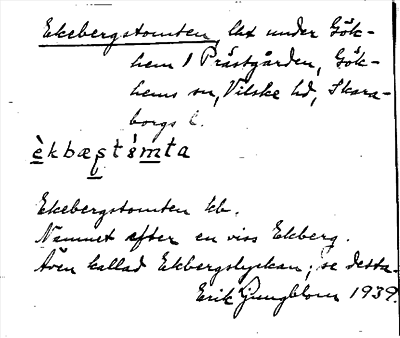 Ekebergstomten, lax under Gök-
hem 1 Prästgården, Gök-
hems sn, Vilske hd, Skara-
borgs l.
èkbæstómta
Ekebergstomten kb.
Namnet efter en viss Ekberg.
Även kallad Ekbergslyckan; se detta.
Erik Ljungblom 1939.